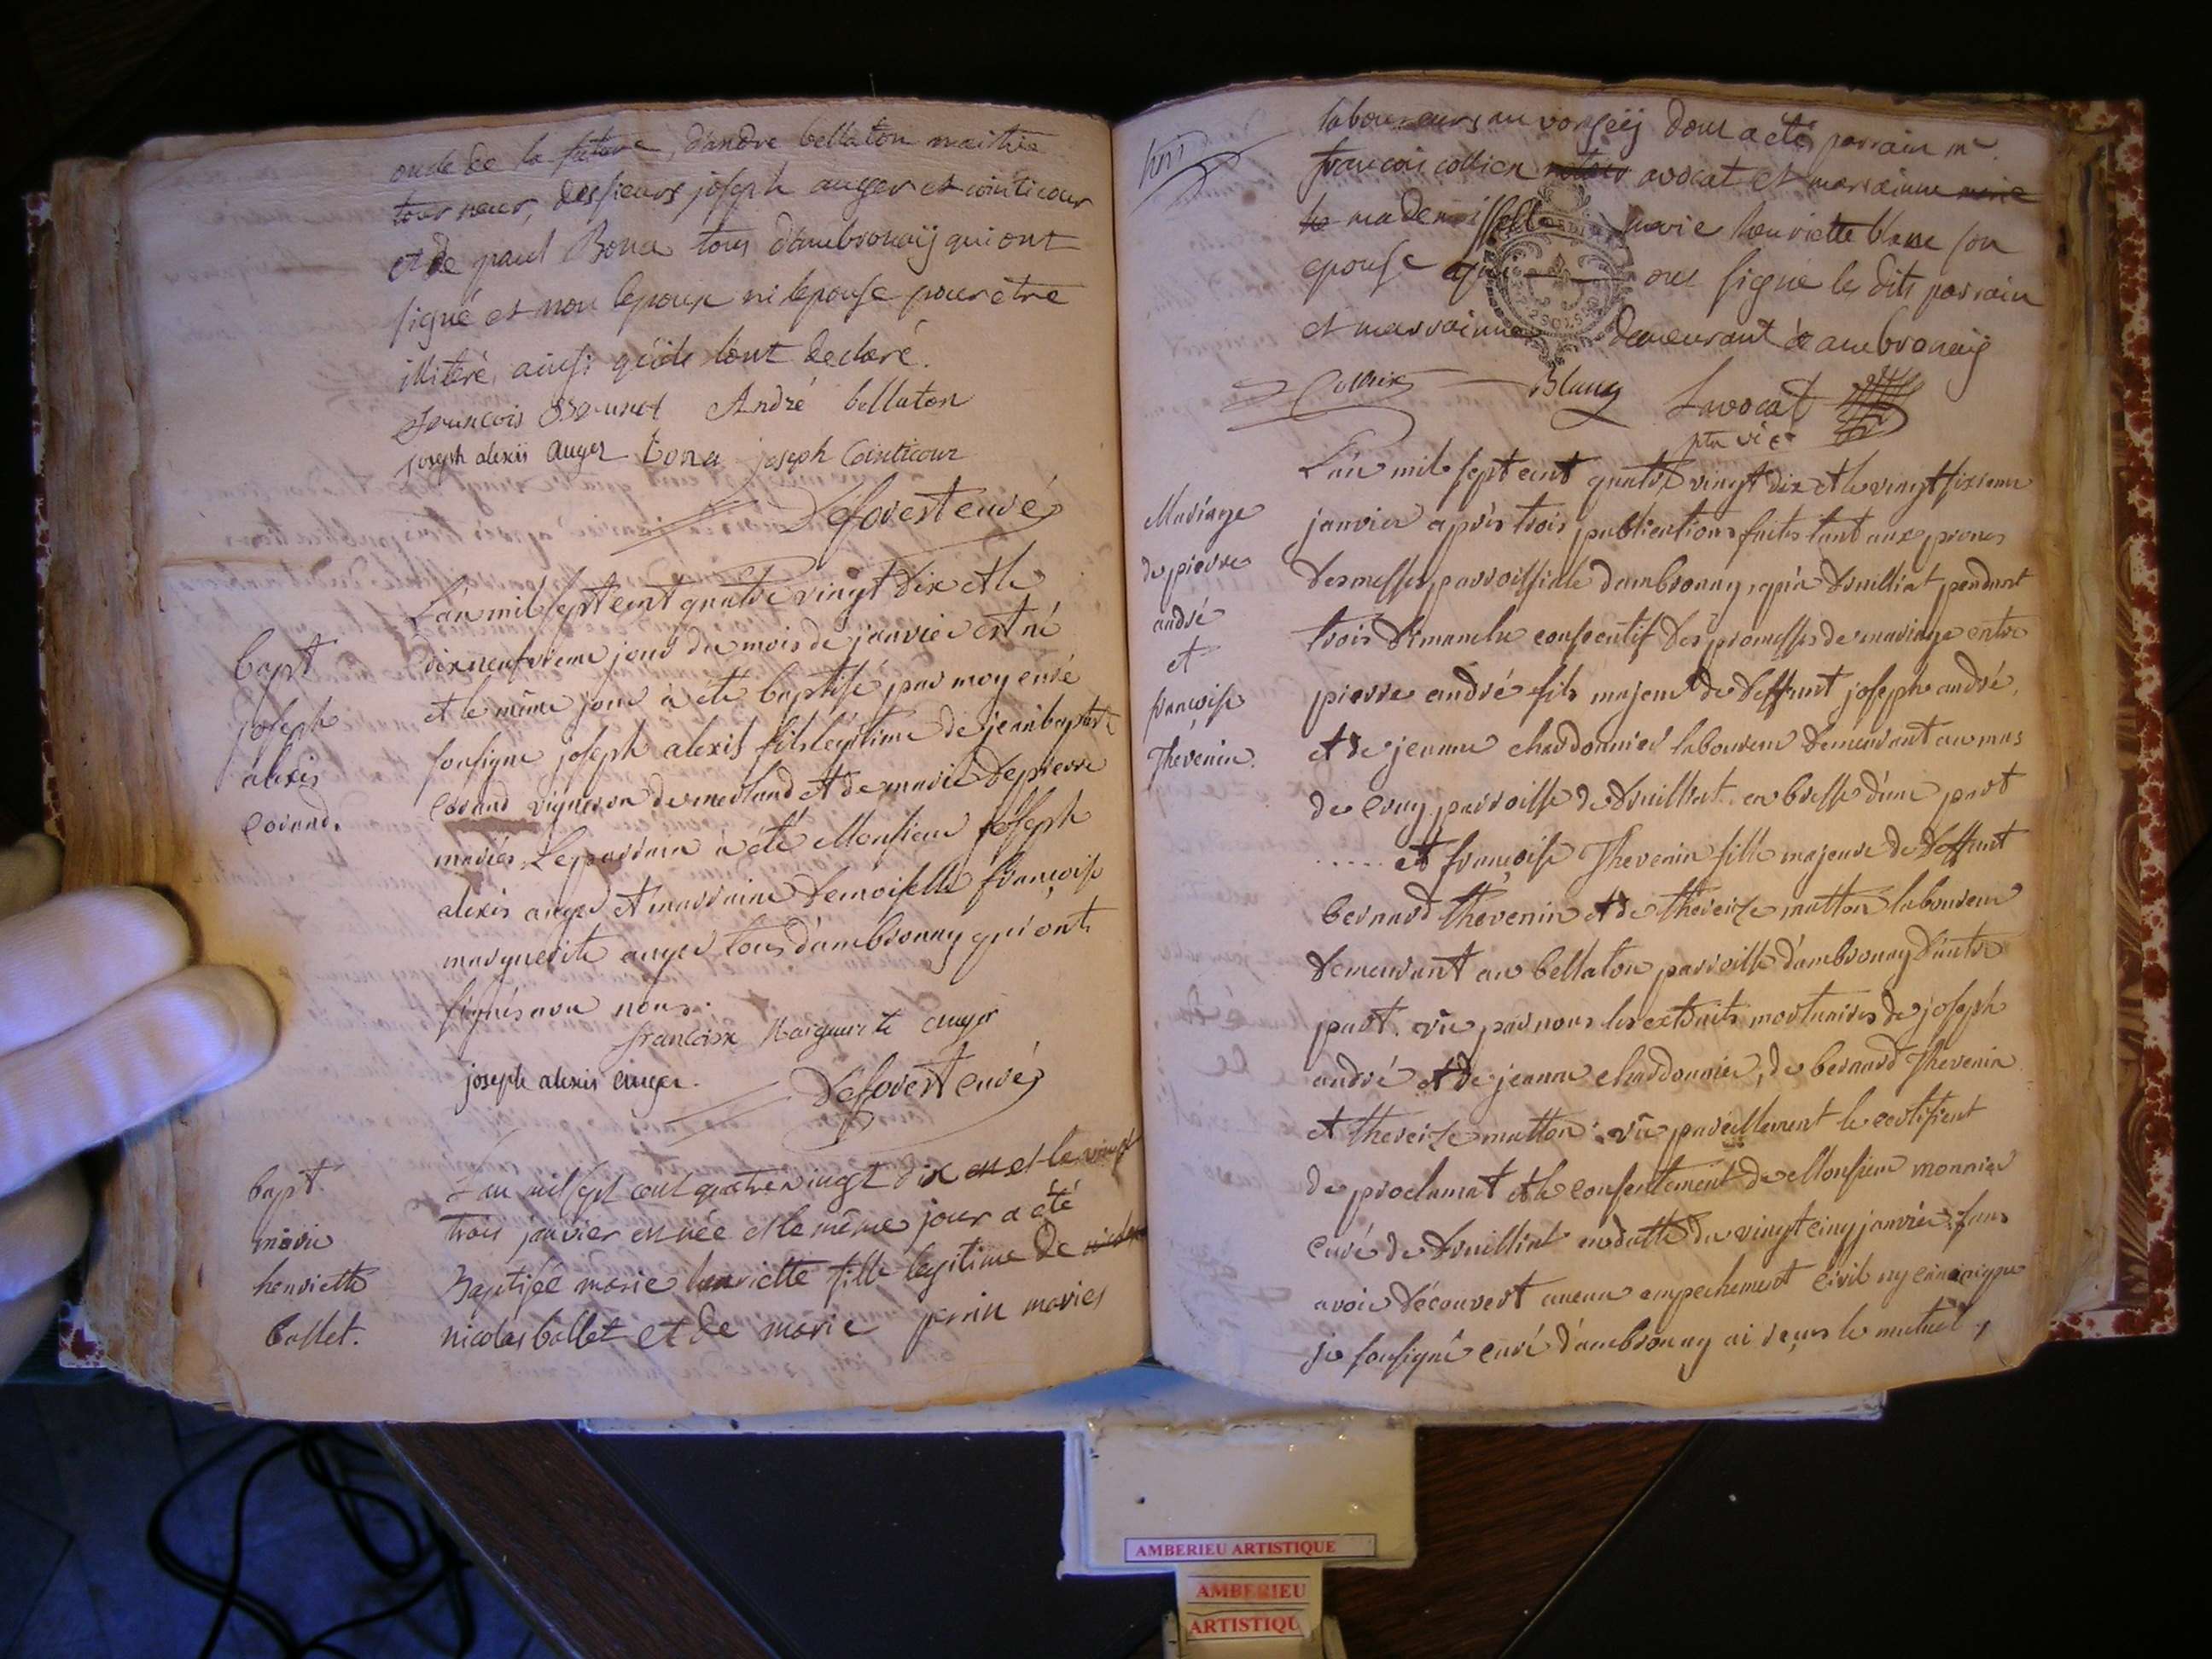 oncle de la future, d'andre bellaton maitre
tourneur, des sieurs joseph auger et cointicour
et de paul Bona tous d'ambronaÿ qui ont
signé et non lepoux ni lepouse pour etre
illiteré, ainsi qu'ils l'ont declaré.
François Brunet André bellaton
joseph alexis auger bona joseph Cointicour
Deforest curé
bapt
joseph
alexis
corand.
L'an mil sept cent quatre vingt dix et le
dixneufvieme jour du mois de janvier est né
et le même jour à été baptisé par moy curé
sousigne joseph alexis fils legitime de jean baptiste
corand vigneron de merland et de marie depierre
mariés. Le parrain à été Monsieur joseph
alexis auger et marraine demoiselle françoise
marguerite auger tous d'ambronay qui ont
signés avec nous.
francoise Marguerite auger
joseph alexis auger.
Deforest curé
bapt.
marie
henriette
ballet.
L'an mil sept cent quatre vingt dix et le vingt
trois janvier est née et le même jour a été
Baptisée marie henriette fille legitime de
nicolas ballet et de marie perrin mariés
laboureurs au dont a été parrain mr.
francois collien avocat et marrainne
mademoisselle marie henriette blanc son
epouse ont signé les dits parrain
et marrainne demeurant à ambronaÿ
Blanc Lavocat
ptre vic
Mariage
de pierre
andré
et
françoise
Thevenin.
L'an mil sept cent quatre vingt dix et le vingt sixieme
janvier après trois publications faites tant aux prones
des messes parroissiale d'ambronay, qu'a druilliat pendant
trois dimanche consecutif des promesses de mariage entre
pierre andré fils majeur de deffunt joseph andré,
et de jeanne chardonnier laboureur demeurant au mas
de cruy parroisse de druilliat en bresse d'une part
..... et françoise Thevenin fille majeure de deffunt
bernard thevenin et de thereize mutton laboureur
demeurant au bellaton parroisse d'ambronay d'autre
part. vu par nous les extraits mortuaires de joseph
andré et de jeanne chardonnier, de bernard Thevenin
et thereize mutton. vu pareillement le certificat
de proclamat et le consentement de Monsieur monnier
curé de druilliat en datte du vingt cinq janvier, sans
avoir découvert aucun empechement civil ny canonique
je sousigné curé d'ambronay ai reçus le mutuel
AMBERIEU ARTISTIQUE
AMBERIEU
ARTISTIQU